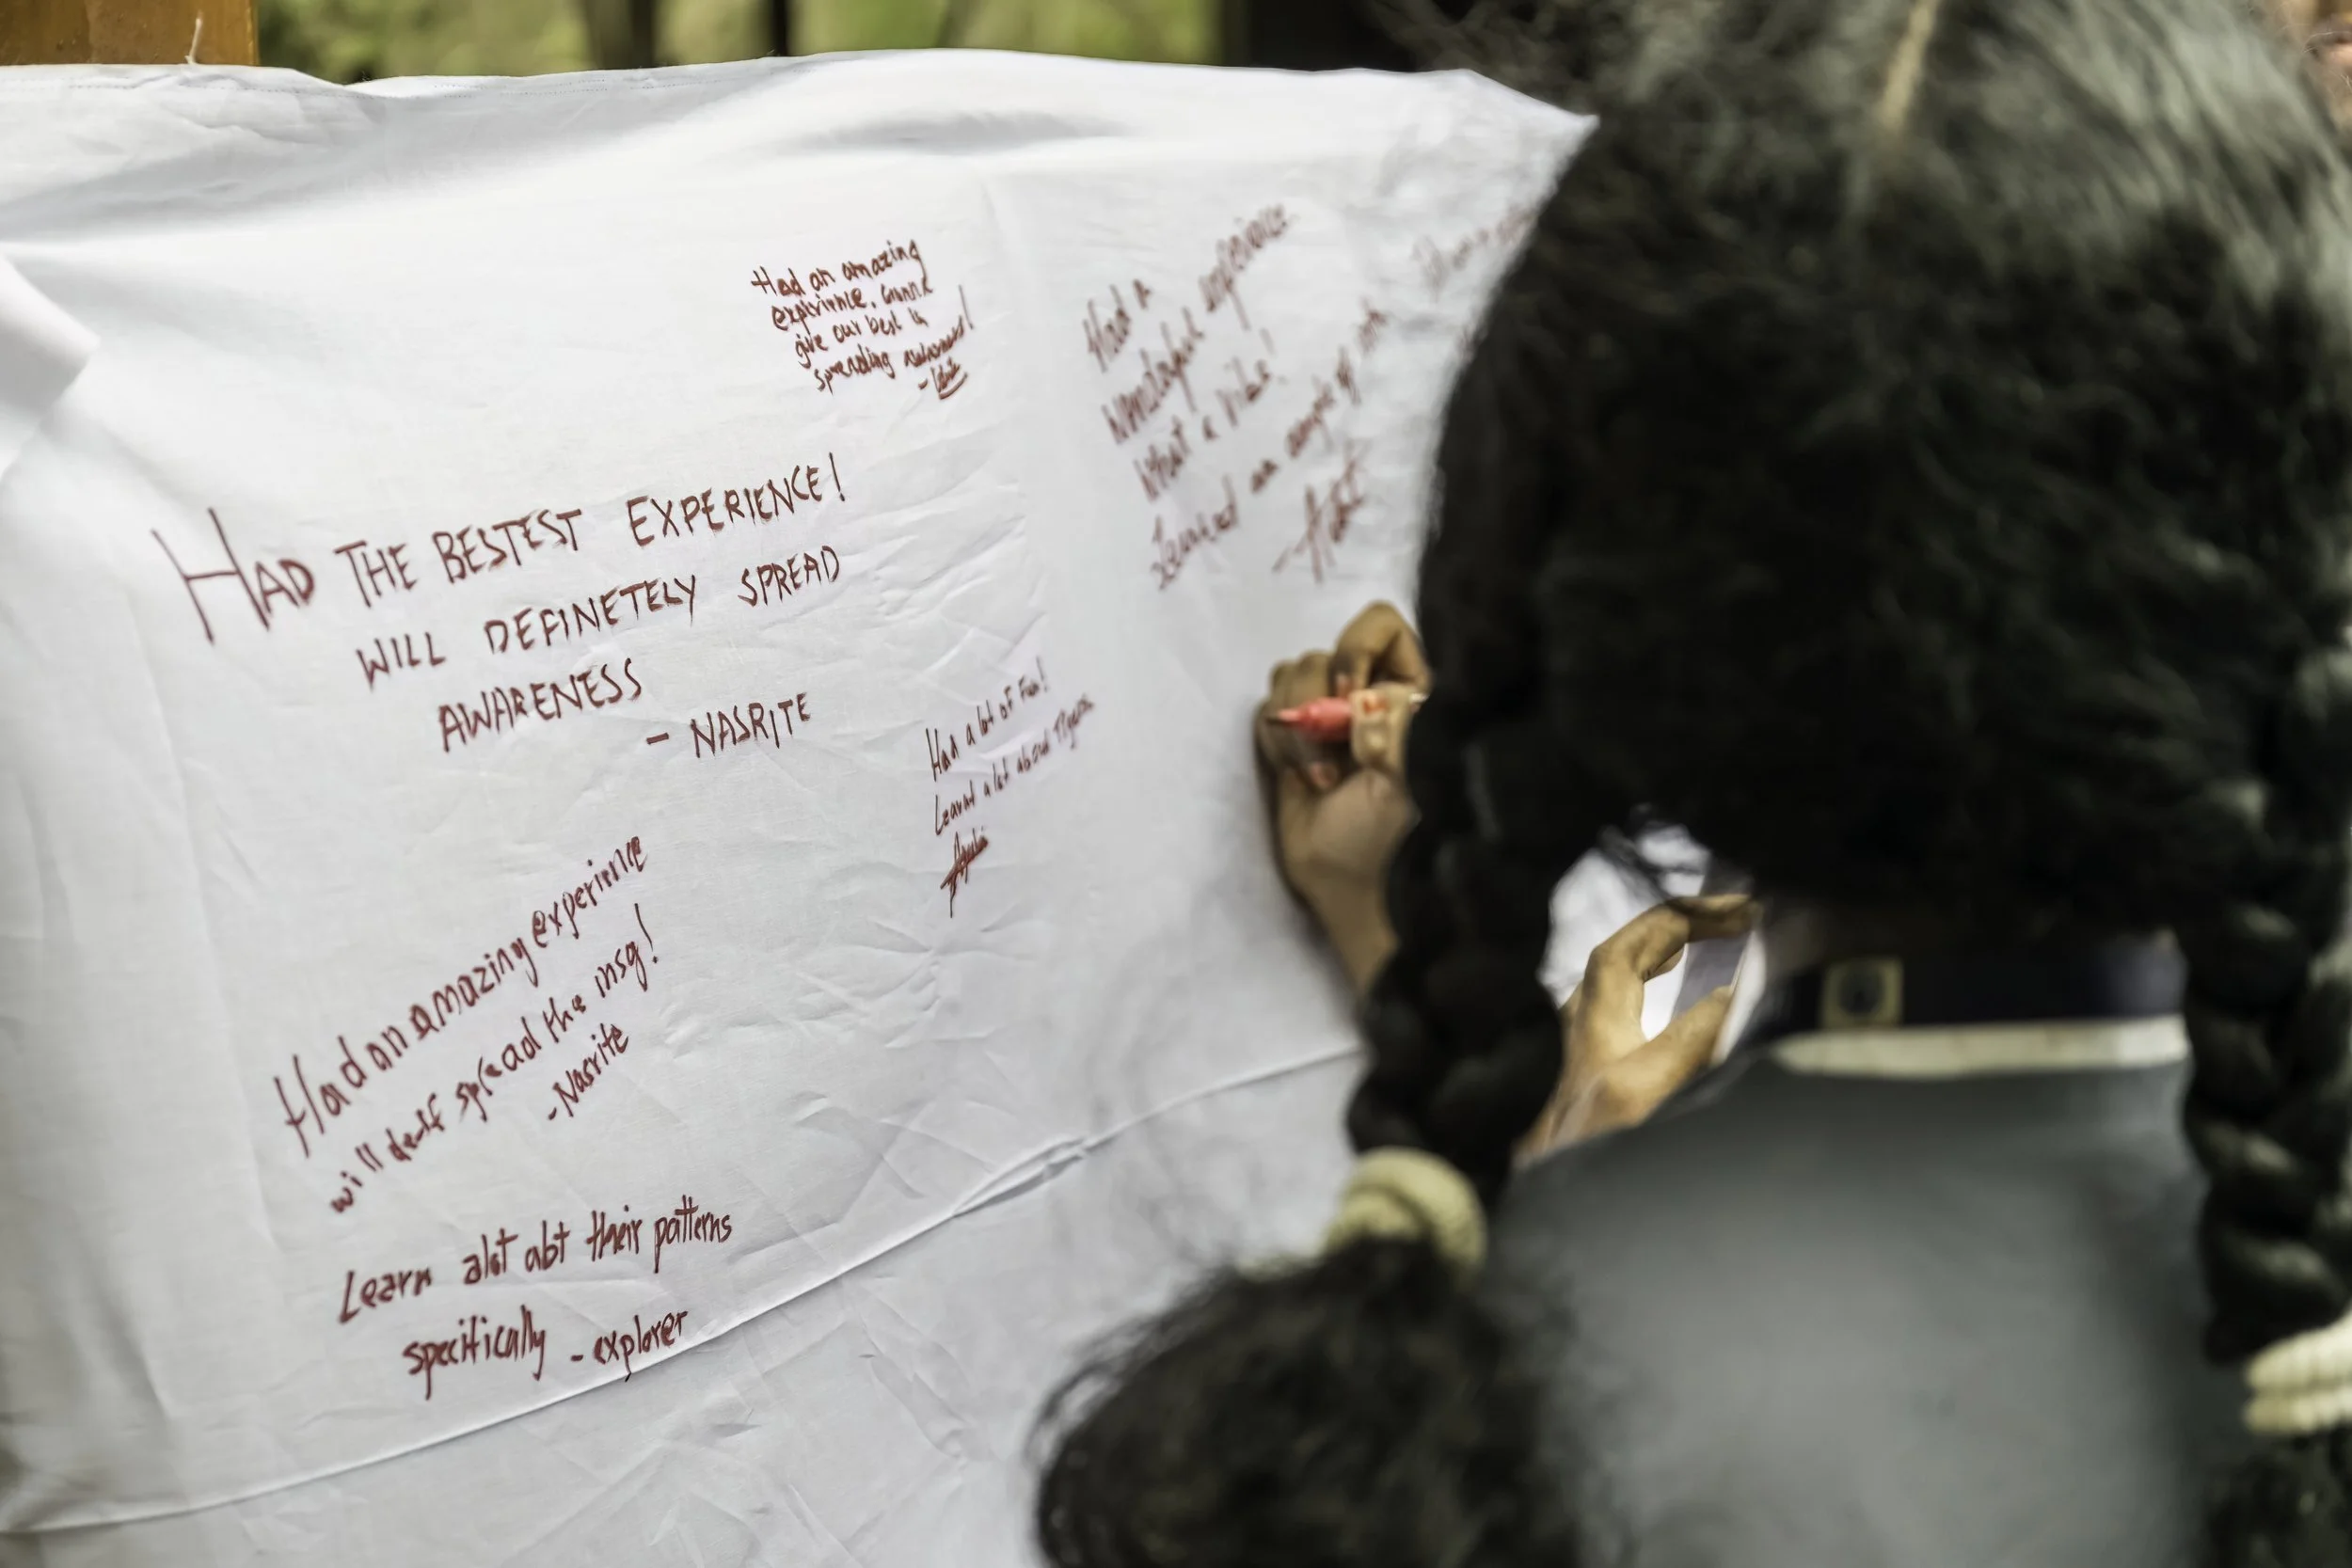 Had an amazing
experience.
give our best in
spreading
HAD THE BESTEST EXPERIENCE!
WILL DEFINETELY SPREAD
AWARENESS
- NASRITE
Had a lot of Fun!
Learnt a lot about Tigers
Had an amazing experience
will def spread the msg!
- Nasrite
Learn alot abt their patterns
specifically - explorer
Had a
experience
What a vibe!
Learned an